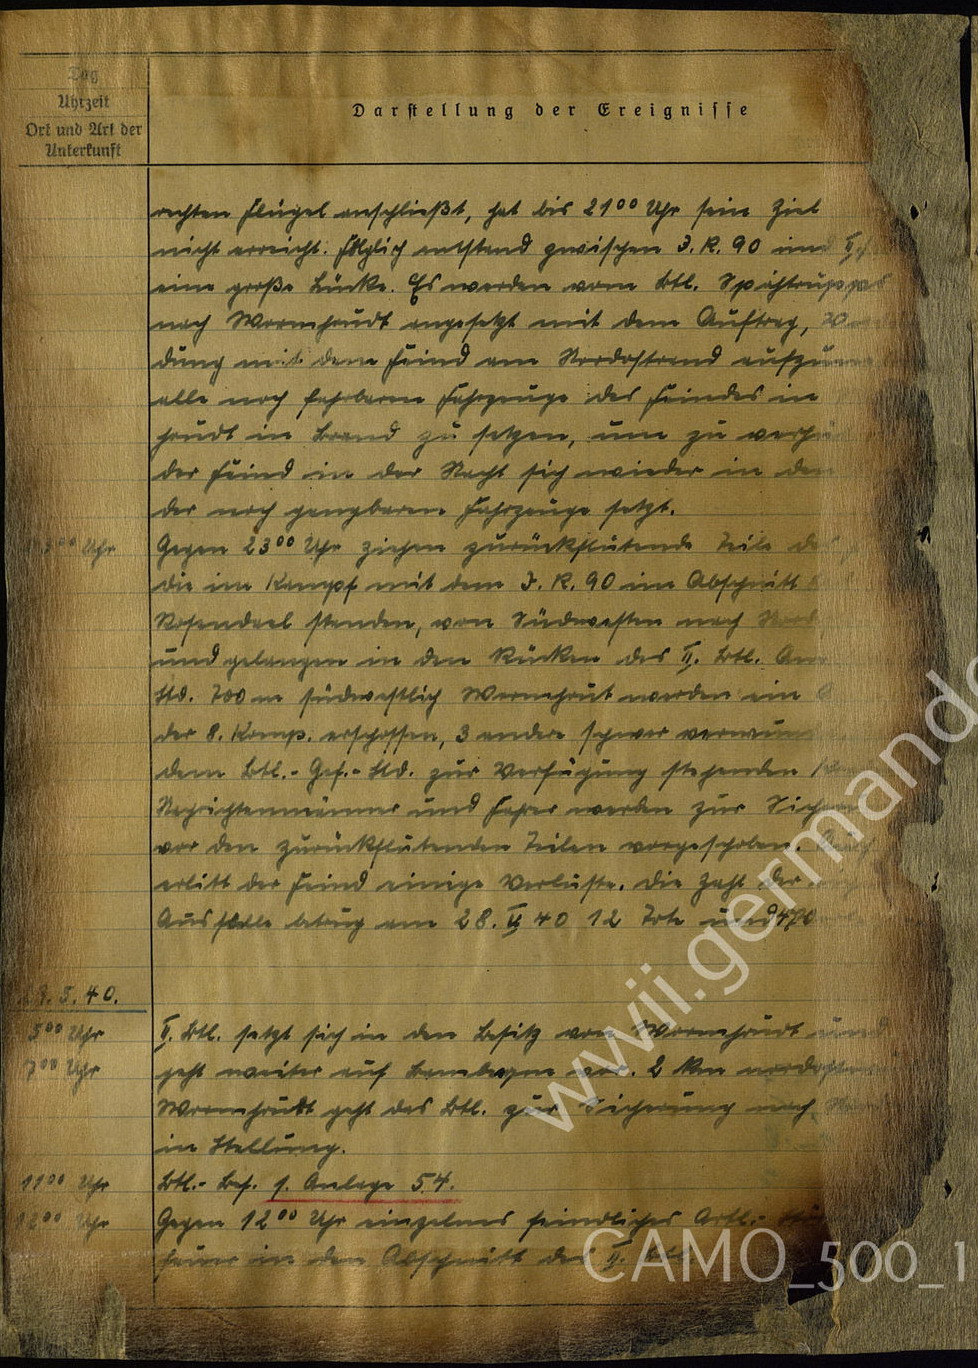 Tag
Uhrzeit
Ort und Art der
Unterkunft
Darstellung der Ereignisse
rechten Flügel anschließt, hat bis 21⁰⁰ Uhr sein Ziel
nicht erreicht. Folglich entstand zwischen J.R. 90 und II.
eine große Lücke. Es werden vom Btl. Spähtrupps
nach Wormhoudt angesetzt mit dem Auftrag,
dung mit dem Feind am Nordostrand
alle noch fahrbaren Fahrzeuge des Feindes in
houdt in Brand zu setzen, um zu
der Feind in der Nacht sich wieder in den
der noch gangbaren Fahrzeuge setzt.
23⁰⁰ Uhr
Gegen 23⁰⁰ Uhr ziehen zurückflutende Teile
die im Kampf mit dem J.R. 90 im Abschnitt
Rosendael standen, von Südwesten nach
und gelangen in den Rücken des II. Btl. Am
Std. 700 m südwestlich Wormhout werden ein
der 8. Komp. erschossen, 3 andere schwer
dem Btl.-Gef.-Std. zur Verfügung stehenden
Nachrichtenmänner und Fahrer werden zur
vor den zurückflutenden Teilen vorgeschoben.
erlitt der Feind einige Verluste. Die Zahl der
Ausfälle betrug am 28. V 40 12 Tote und
29. 5. 40.
5⁰⁰ Uhr
II. Btl. setzt sich in den Besitz von Wormhoudt und
7⁰⁰ Uhr
geht weiter auf vor. 2 Km
Wormhoudt geht das Btl. zur Sicherung nach
in Stellung.
11⁰⁰ Uhr
Btl.- Bef. s. Anlage 54.
12⁰⁰ Uhr
Gegen 12⁰⁰ Uhr einzelnes feindliches Artl.-
feuer in den Abschnitt des II. Btl.
www.ii.germandoc
CAMO_500_1